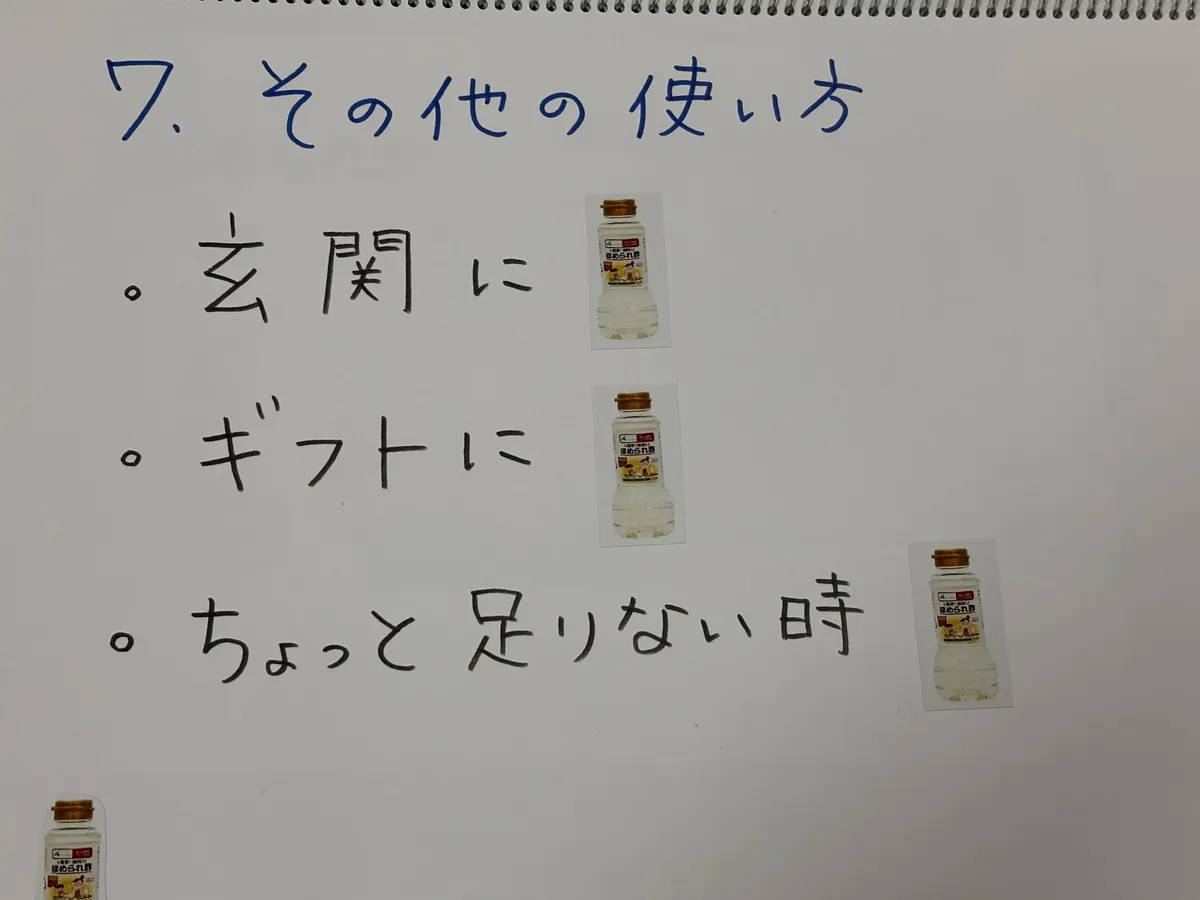 7. その他の使い方
。玄関に
ほめられ酢
。ギフトに
ほめられ酢
。ちょっと足りない時
ほめられ酢
ほめられ酢